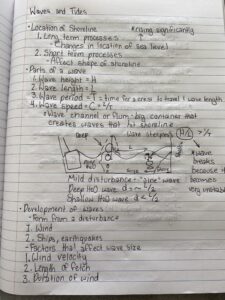 Waves and Tides
• Location of Shoreline *rising significantly
1. Long term processes
- Changes in location of sea level
2. Short term processes
- Affect shape of shoreline
• Parts of a wave
1. Wave height = H
2. Wave length = L
3. Wave period = T = time for a crest to travel 1 wave length
4. Wave speed = C = L/T
* Wave channel or flum - big container that
creates waves that hit shoreline
Deep wave steepness (H/L) > 1/7
L
H
* wave
breaks
because it
becomes
very unstable
Mild disturbance = "sine" wave
Deep H2O wave d = L/2
Shallow H2O wave d < L/2
• Development of Waves
- Form from a disturbance
1. Wind
2. Ships, earthquakes
- Factors that affect wave size
1. Wind velocity
2. Length of fetch
3. Duration of wind